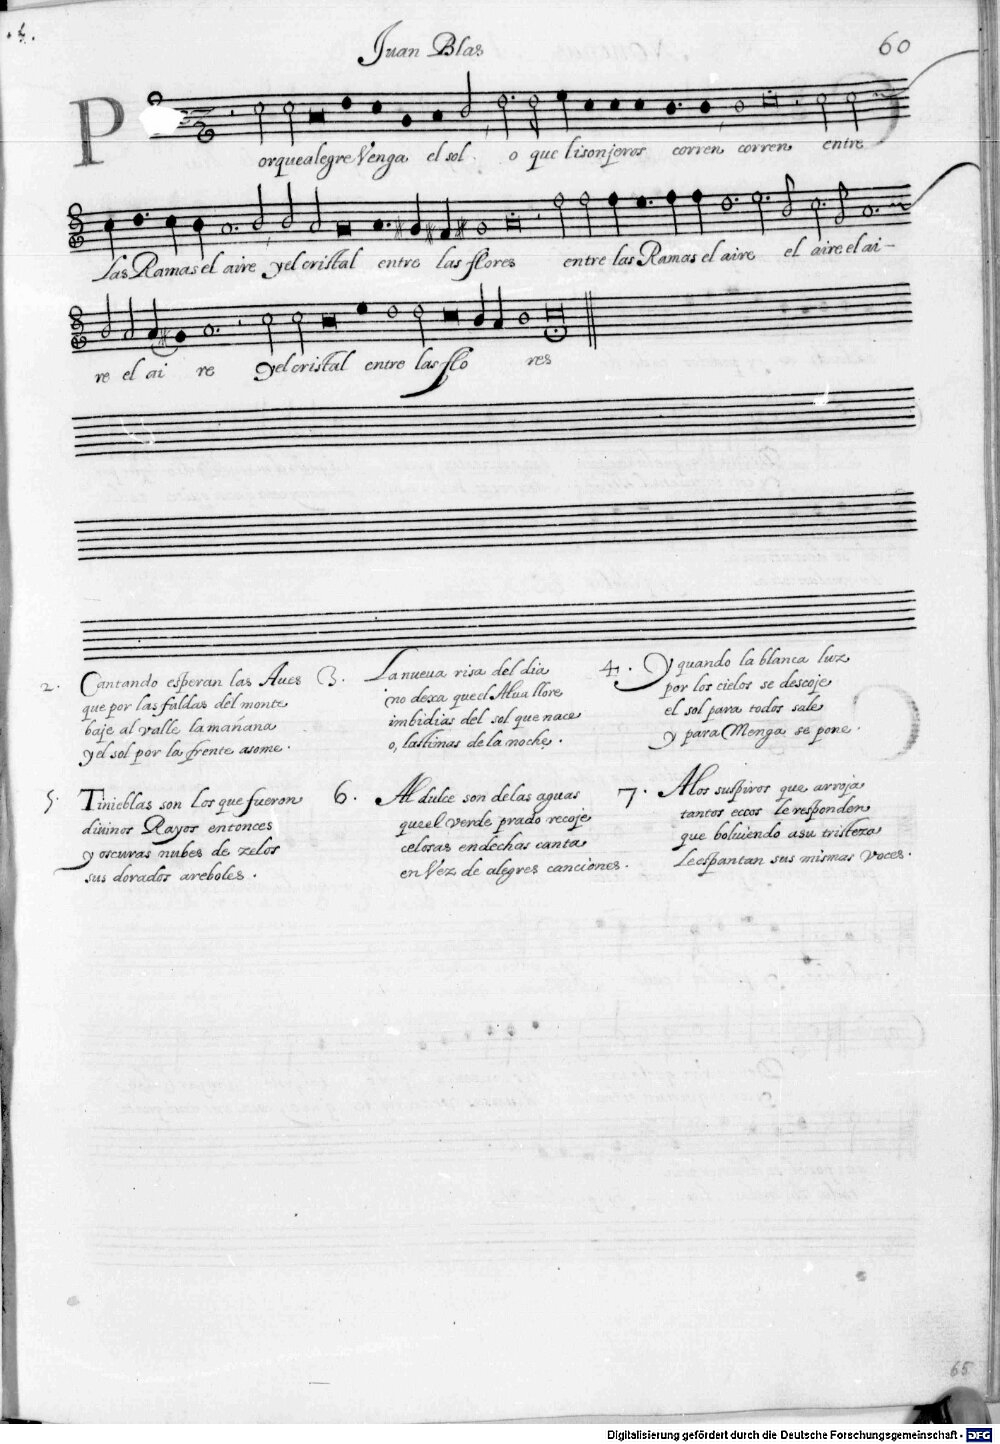 Juan Blas
60
Porque alegre Venga el sol. o que lisonjeros corren corren entre
las Ramas el aire y el cristal entre las flores entre las Ramas el aire el aire el ai-
re el ai re y el cristal entre las flo res
2. Cantando esperan las Aues
que por las faldas del monte
baje al valle la mañana
y el sol por la frente asome.
3. La nueua risa del dia
no dexa que el Alua llore
imbidias del sol que nace
o, lastimas de la noche.
4. Y quando la blanca luz
por los cielos se descoje
el sol para todos sale
y para Menga se pone.
5. Tinieblas son los que fueron
diuinos Rayos entonces
y oscuras nubes de zelos
sus dorados areboles.
6. Al dulce son de las aguas
que el verde prado recoje
celosas endechas canta
en Vez de alegres canciones.
7. A los suspiros que arroja
tantos eccos le responden
que boluiendo a su tristeza
le espantan sus mismas voces.
65
Digitalisierung gefördert durch die Deutsche Forschungsgemeinschaft - DFG